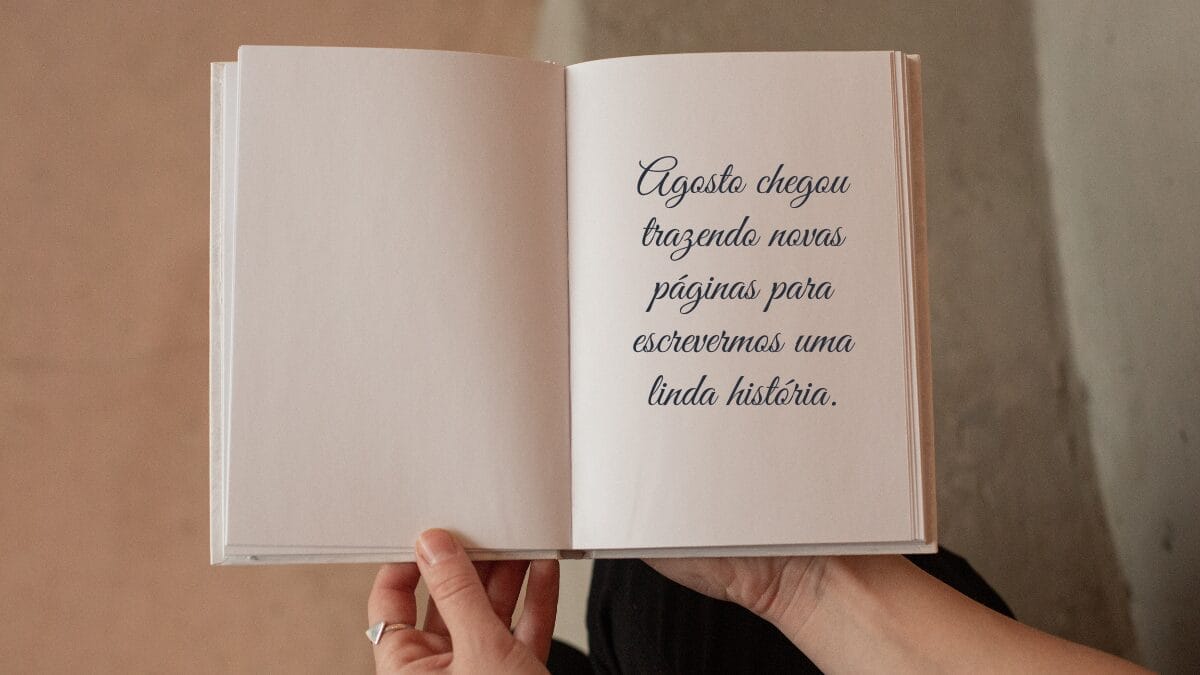 Agosto chegou
trazendo novas
páginas para
escrevermos uma
linda história.